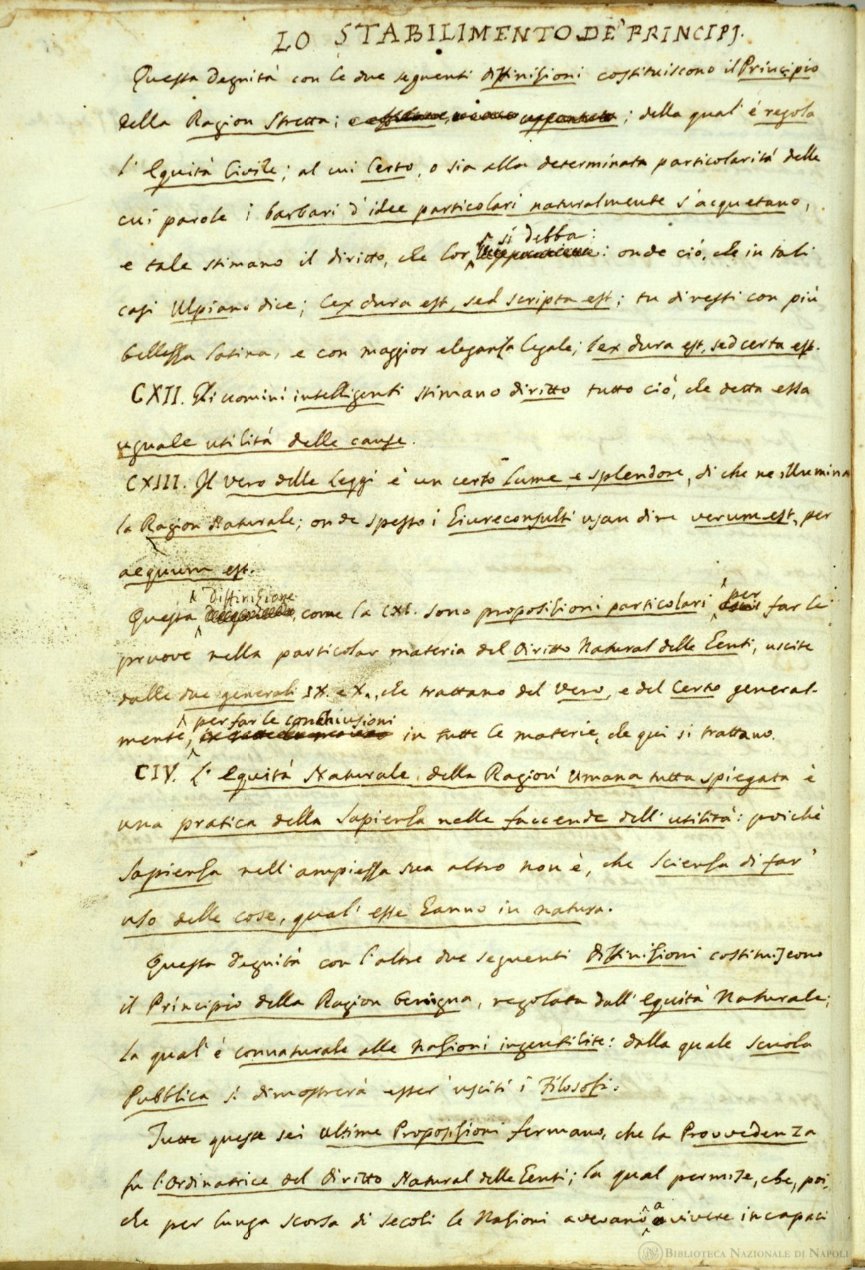 LO STABILIMENTO DE' PRINCIPJ.
Questa degnità con le due seguenti diffinizioni costituiscono il Principio
della Ragion Stretta; ; della qual' è regola
l' Equità Civile; al cui Certo, o sia alla determinata particolarità delle
cui parole i barbari d' idee particolari naturalmente s' acquetano,
si debba:
e tale stimano il diritto, che lor : onde ciò, che in tali
casi Ulpiano dice; lex dura est, sed scripta est; tu diresti con più
bellezza latina, e con maggior eleganza legale; lex dura est, sed certa est.
CXII. Gli uomini intelligenti stimano diritto tutto ciò, che detta essa
uguale utilità delle cause.
CXIII. Il vero delle Leggi è un certo lume e splendore, di che ne illumina
la Ragion Naturale; onde spesso i Giureconsulti usan dire verum est, per
aequum est.
Diffinizione per
Questa , come la CXI. sono proposizioni particolari far le
pruove nella particolar materia del Diritto Natural delle Genti, uscite
dalle due generali IX. e X., che trattano del Vero, e del Certo general-
per far le conchiusioni
mente, in tutte le materie, che qui si trattano.
CIV. L' Equità Naturale della Ragion' Umana tutta spiegata è
una pratica della Sapienza nelle faccende dell' utilità: poichè
Sapienza nell' ampiezza sua altro non è, che Scienza di far'
uso delle cose, qual' esse hanno in natura.
Questa degnità con l' altre due seguenti diffinizioni costituiscono
il Principio della Ragion benigna, regolata dall' Equità Naturale;
la qual' è connaturale alle Nazioni ingentilite: dalla quale scuola
Pubblica si dimostrerà esser' usciti i Filosofi.
Tutte queste sei ultime Proposizioni fermano, che la Provvedenza
fu l' Ordinatrice del Diritto Natural delle Genti; la qual permise, che, poi-
che per lunga scorsa di secoli le Nazioni avevano a vivere incapaci
BIBLIOTECA NAZIONALE DI NAPOLI